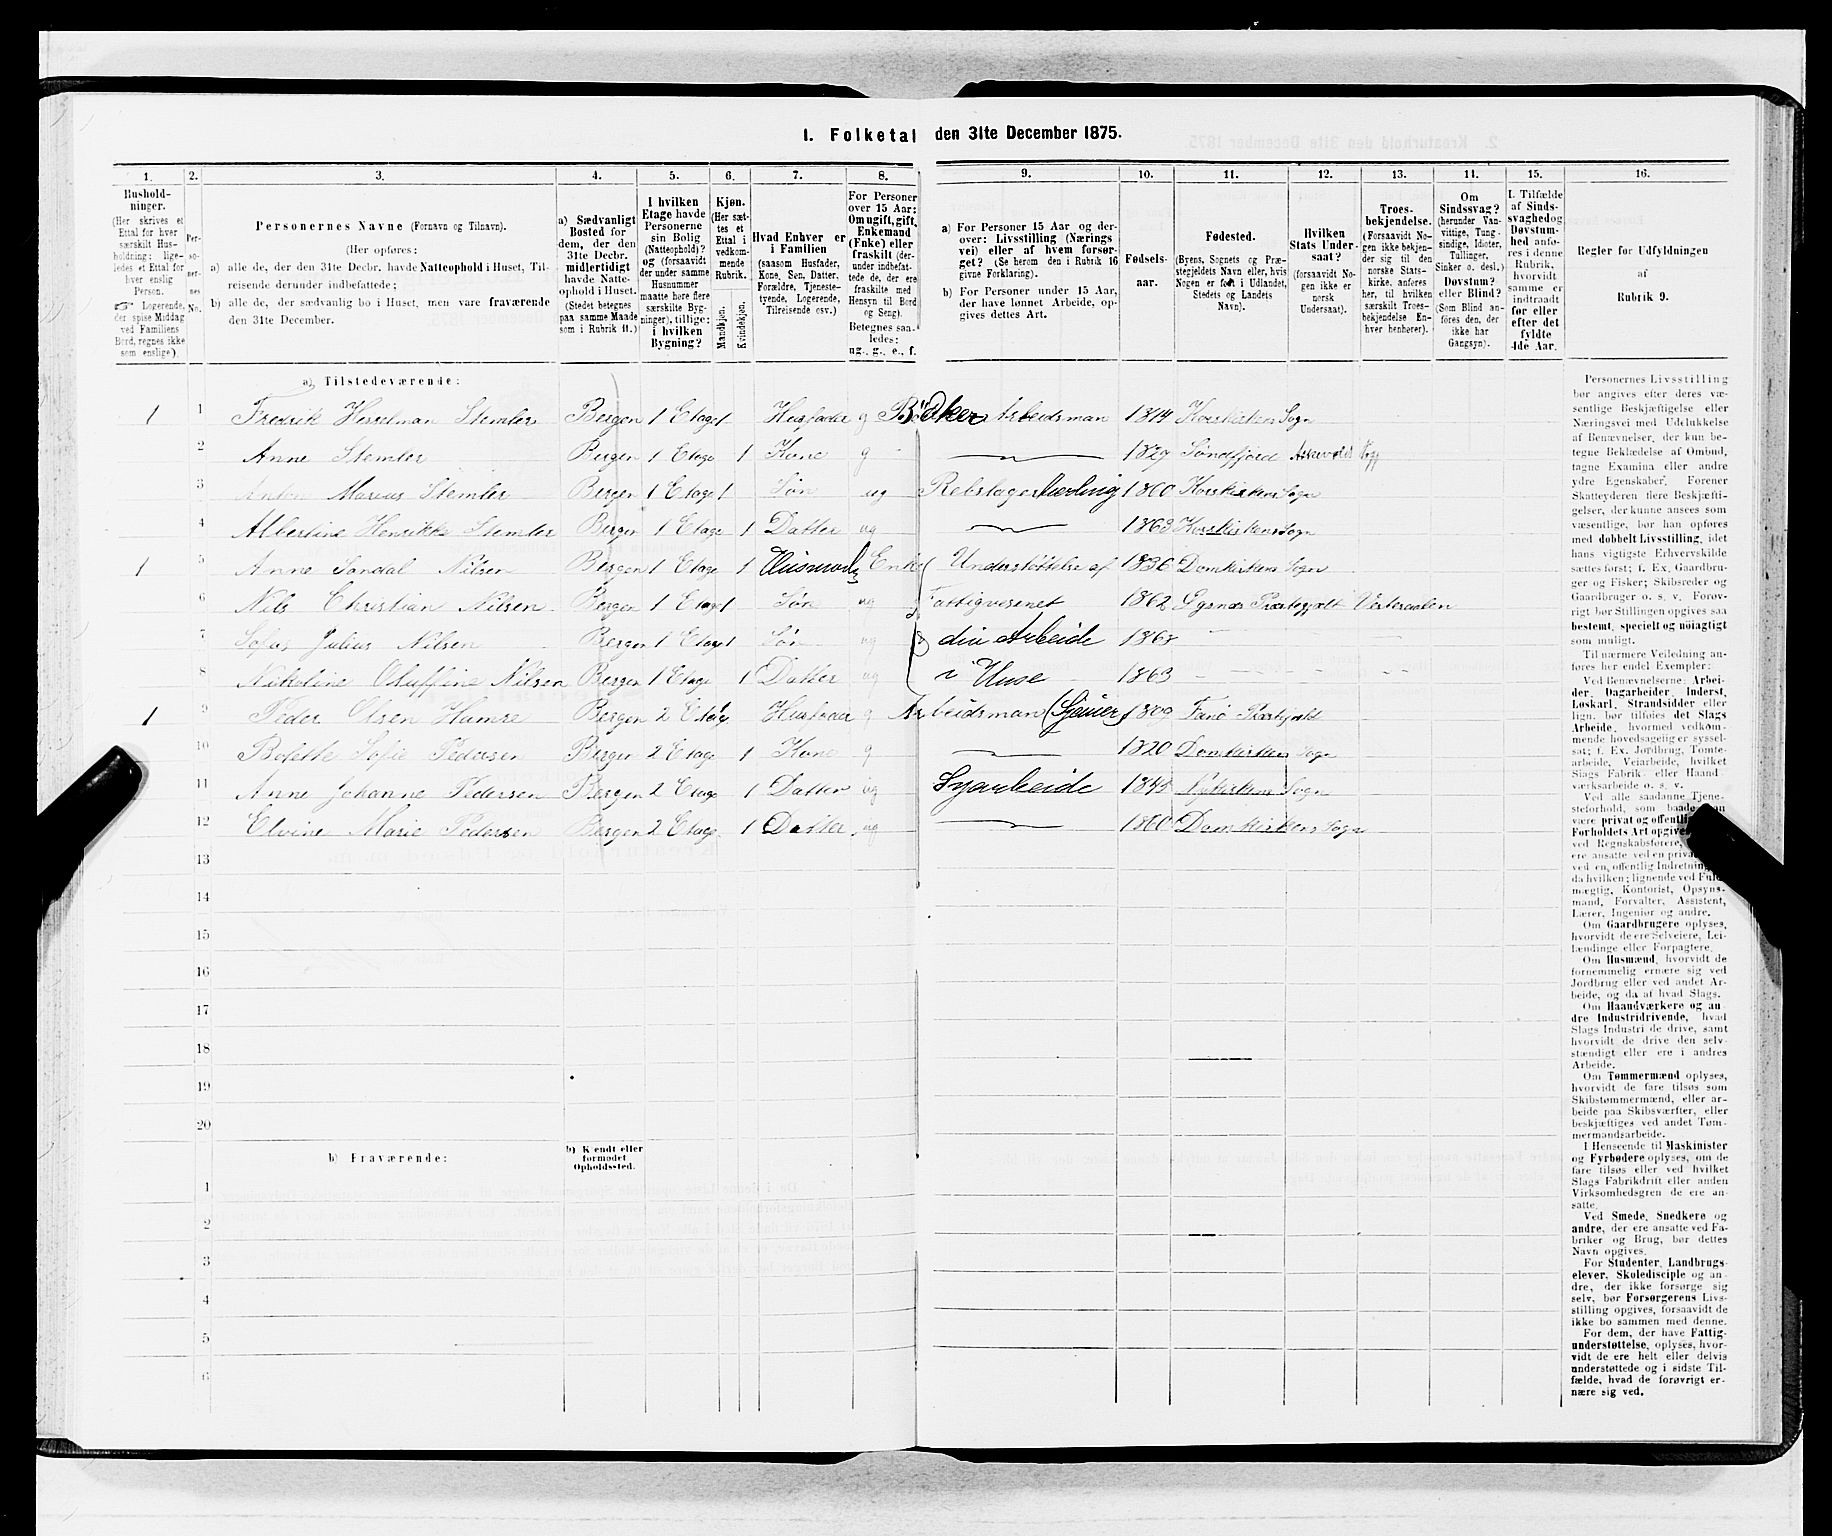 1. Folketal den 31te December 1875.
1. 2. 3. 4. 5. 6. 7. 8. 9. 10. 11. 12. 13. 14. 15. 16.
Husholdninger.
(Her skrives et
Ettal for hver
særskilt Husholdning;
ligeledes et Ettal for
hver enslig
Person.
☞ Logerende,
der spise Middag
ved Familiens
Bord, regnes ikke
som enslige).
Personernes No.
Personernes Navne (Fornavn og Tilnavn).
(Her opføres:
a) alle de, der den 31te Decbr. havde Natteophold i Huset, Tilreisende
derunder indbefattede;
b) alle de, der sædvanlig bo i Huset, men vare fraværende
den 31te December.
a) Sædvanligt
Bosted for
dem, der den
31te Decbr.
midlertidigt
havde Natteophold
i Huset.
(Stedet betegnes
paa samme Maade
som i Rubrik 11.)
I hvilken
Etage havde
Personerne
sin Bolig
(Natteophold)?
og (forsaavidt
der under samme
Husnummer
maatte høre flere
særskilte Bygninger),
tillige:
i hvilken
Bygning?
Kjøn.
(Her sættes
et
Ettal i
vedkommende
Rubrik.
Mandkjøn.
Kvindekjøn.
Hvad Enhver er
i Familien
(saasom Husfader,
Kone, Søn, Datter,
Forældre, Tjenestetyende,
Logerende,
Tilreisende osv.)
For Personer
over 15 Aar:
Om ugift, gift,
Enkemand
(Enke) eller
fraskilt (derunder
indbefattede
de, der ere
fraskilte med
Hensyn til Bord
og Seng).
Betegnes saaledes:
ug., g., e., f.
a) For Personer 15 Aar og derover:
Livsstilling (Næringsvei)
eller af hvem forsørget?
(Se herom den i Rubrik 16
givne Forklaring).
b) For Personer under 15 Aar,
der have lønnet Arbeide, opgives
dettes Art.
Fødselsaar.
Fødested.
(Byens, Sognets og Præstegjeldets
Navn eller, hvis
Nogen er født i Udlandet,
Stedets og Landets
Navn).
Hvilken
Stats Undersaat?
(forsaavidt Nogen
ikke er
norsk
Undersaat).
Troesbekjendelse.
(Forsaavidt Nogen
ikke bekjender
sig til den
norske Statskirke,
anføres
her, til hvilken
særskilt Troesbekjendelse
Enhver
henhører).
Om
Sindssvag?
(herunder Vanvittige,
Tungsindige,
Idioter,
Tullinger,
Sinker o. desl.)
Døvstum?
eller Blind?
(Som Blind anføres
den, der
ikke har
Gangsyn).
I Tilfælde
af Sindssvaghed
og
Døvstumhed
anføres
i denne
Rubrik,
hvorvidt
samme er
indtraadt
før eller
efter det
fyldte
4de Aar.
Regler for Udfyldningen
af
Rubrik 9.
a) Tilstedeværende:
1 1 Fredrik Hesselman Stemler Bergen 1 Etage 1 Husfader g Bödker Arbeidsman 1814 Korskirkens Sogn
2 Anne Stemler Bergen 1 Etage 1 Kone g 1829 Söndfjord Askevold Sogn
3 Anton Marius Stemler Bergen 1 Etage 1 Søn ug Rebslagerlærling 1860 Korskirkens Sogn
4 Albertine Henrikke Stemler Bergen 1 Etage 1 Datter ug 1863 Korskirkens Sogn
1 5 Anne Sandal Nilsen Bergen 1 Etage 1 Husmoder Enke Understöttelse af 1836 Domkirkens Sogn
6 Nils Christian Nilsen Bergen 1 Etage 1 Søn ug Fattigvesenet 1862 Præstegjelt Vesteraalen
7 Sofus Julius Nilsen Bergen 1 Etage 1 Søn ug din Arbeide 1868
8 Nikoline Oluffine Nilsen Bergen 1 Etage 1 Datter ug i Huse 1863
1 9 Peder Olsen Hamre Bergen 2 Etage Husfader g Arbeidsman 1809 Fanö Præstgjeld
10 Bolette Sofie Pedersen Bergen 2 Etage 1 Kone g 1820 Domkirkens Sogn
11 Anne Johanne Pedersen Bergen 2 Etage 1 Datter ug Syarbeide 1845 Nykirkens Sogn
12 Elvine Marie Pedersen Bergen 2 Etage 1 Datter ug 1860 Domkirkens Sogn
13
14
15
16
17
18
19
20
b) Fraværende:
b) Kjendt eller
formodet
Opholdssted.
1
2
3
4
5
6
Personernes Livsstilling
bør angives efter deres væsentlige
Beskjæftigelse eller
Næringsvei med Udelukkelse
af Benævnelser, der kun betegne
Beklædelse af Ombud,
tagne Examina eller andre
ydre Egenskaber. Forener
Skatteyderen flere Beskjæftigelser,
der kunne ansees som
væsentlige, bør han opføres
med dobbelt Livsstilling, idet
hans vigtigste Erhvervskilde
sættes først; f. Ex. Gaardbruger
og Fisker; Skibsreder og
Gaardbruger o. s. v. Forøvrigt
bør Stillingen opgives saa
bestemt, specielt og nöiagtigt
som muligt.
Til nærmere Veiledning anføres
her endel Exempler:
Ved Benævnelserne: Arbeider,
Dagarbeider, Inderst,
Løskarl, Strandsidder eller
lign. bør tilføies det Slags
Arbeide, hvormed vedkommende
hovedsagelig er sysselsat;
f. Ex. Jordbrug, Tomtearbeide,
Veiarbeide, hvilket
Slags Fabrik- eller Haandværksarbeide
o. s. v.
Ved alle saadanne Tjenesteforhold,
som baade kan
være privat og offentlig
Forholdets Art opgives
ved Regnskabsførere,
ere ansatte ved en privat
ved en, offentlig Indretning
da hvilken; lignende ved Fuldmægtig,
Kontorist, Opsynsmand,
Forvalter, Assistent,
Lærer, Ingeniør og andre.
Om Gaardbrugere oplyses,
hvorvidt de ere Selveiere, Leilændinge
eller Forpagtere.
Om Husmænd, hvorvidt de
fornemmelig ernære sig ved
Jordbrug eller ved andet Arbeide,
og da af hvad Slags.
Om Haandværkere og andre
Industridrivende, hvad
Slags Industri de drive, samt
hvorvidt de drive den selvstændigt
eller ere i andres
Arbeide.
Om Tømmermænd oplyses,
hvorvidt de fare tilsøs som
Skibstømmermænd, eller arbeide
paa Skibsværfter, eller
beskjæftiges ved andet Tømmermandsarbeide.
I Henseende til Maskinister
og Fyrbødere oplyses, om de
fare tilsøs eller ved hvilket
Slags Fabrikdrift eller anden
Virksomhedsgren de ere ansatte.
Ved Smede, Snedkere og
andre, der ere ansatte ved Fabriker
og Brug, bør dettes
Navn opgives.
For Studenter, Landbrugselever,
Skoledisciple og andre,
der ikke forsørge sig
selv, bør Forsørgerens Livsstilling
opgives, forsaavidt de
ikke bo sammen med denne.
For dem, der have Fattigunderstøttelse,
oplyses, hvorvidt
de ere helt eller delvis
understøttede og i sidste Tilfælde,
hvad de forøvrigt ernære
sig ved.